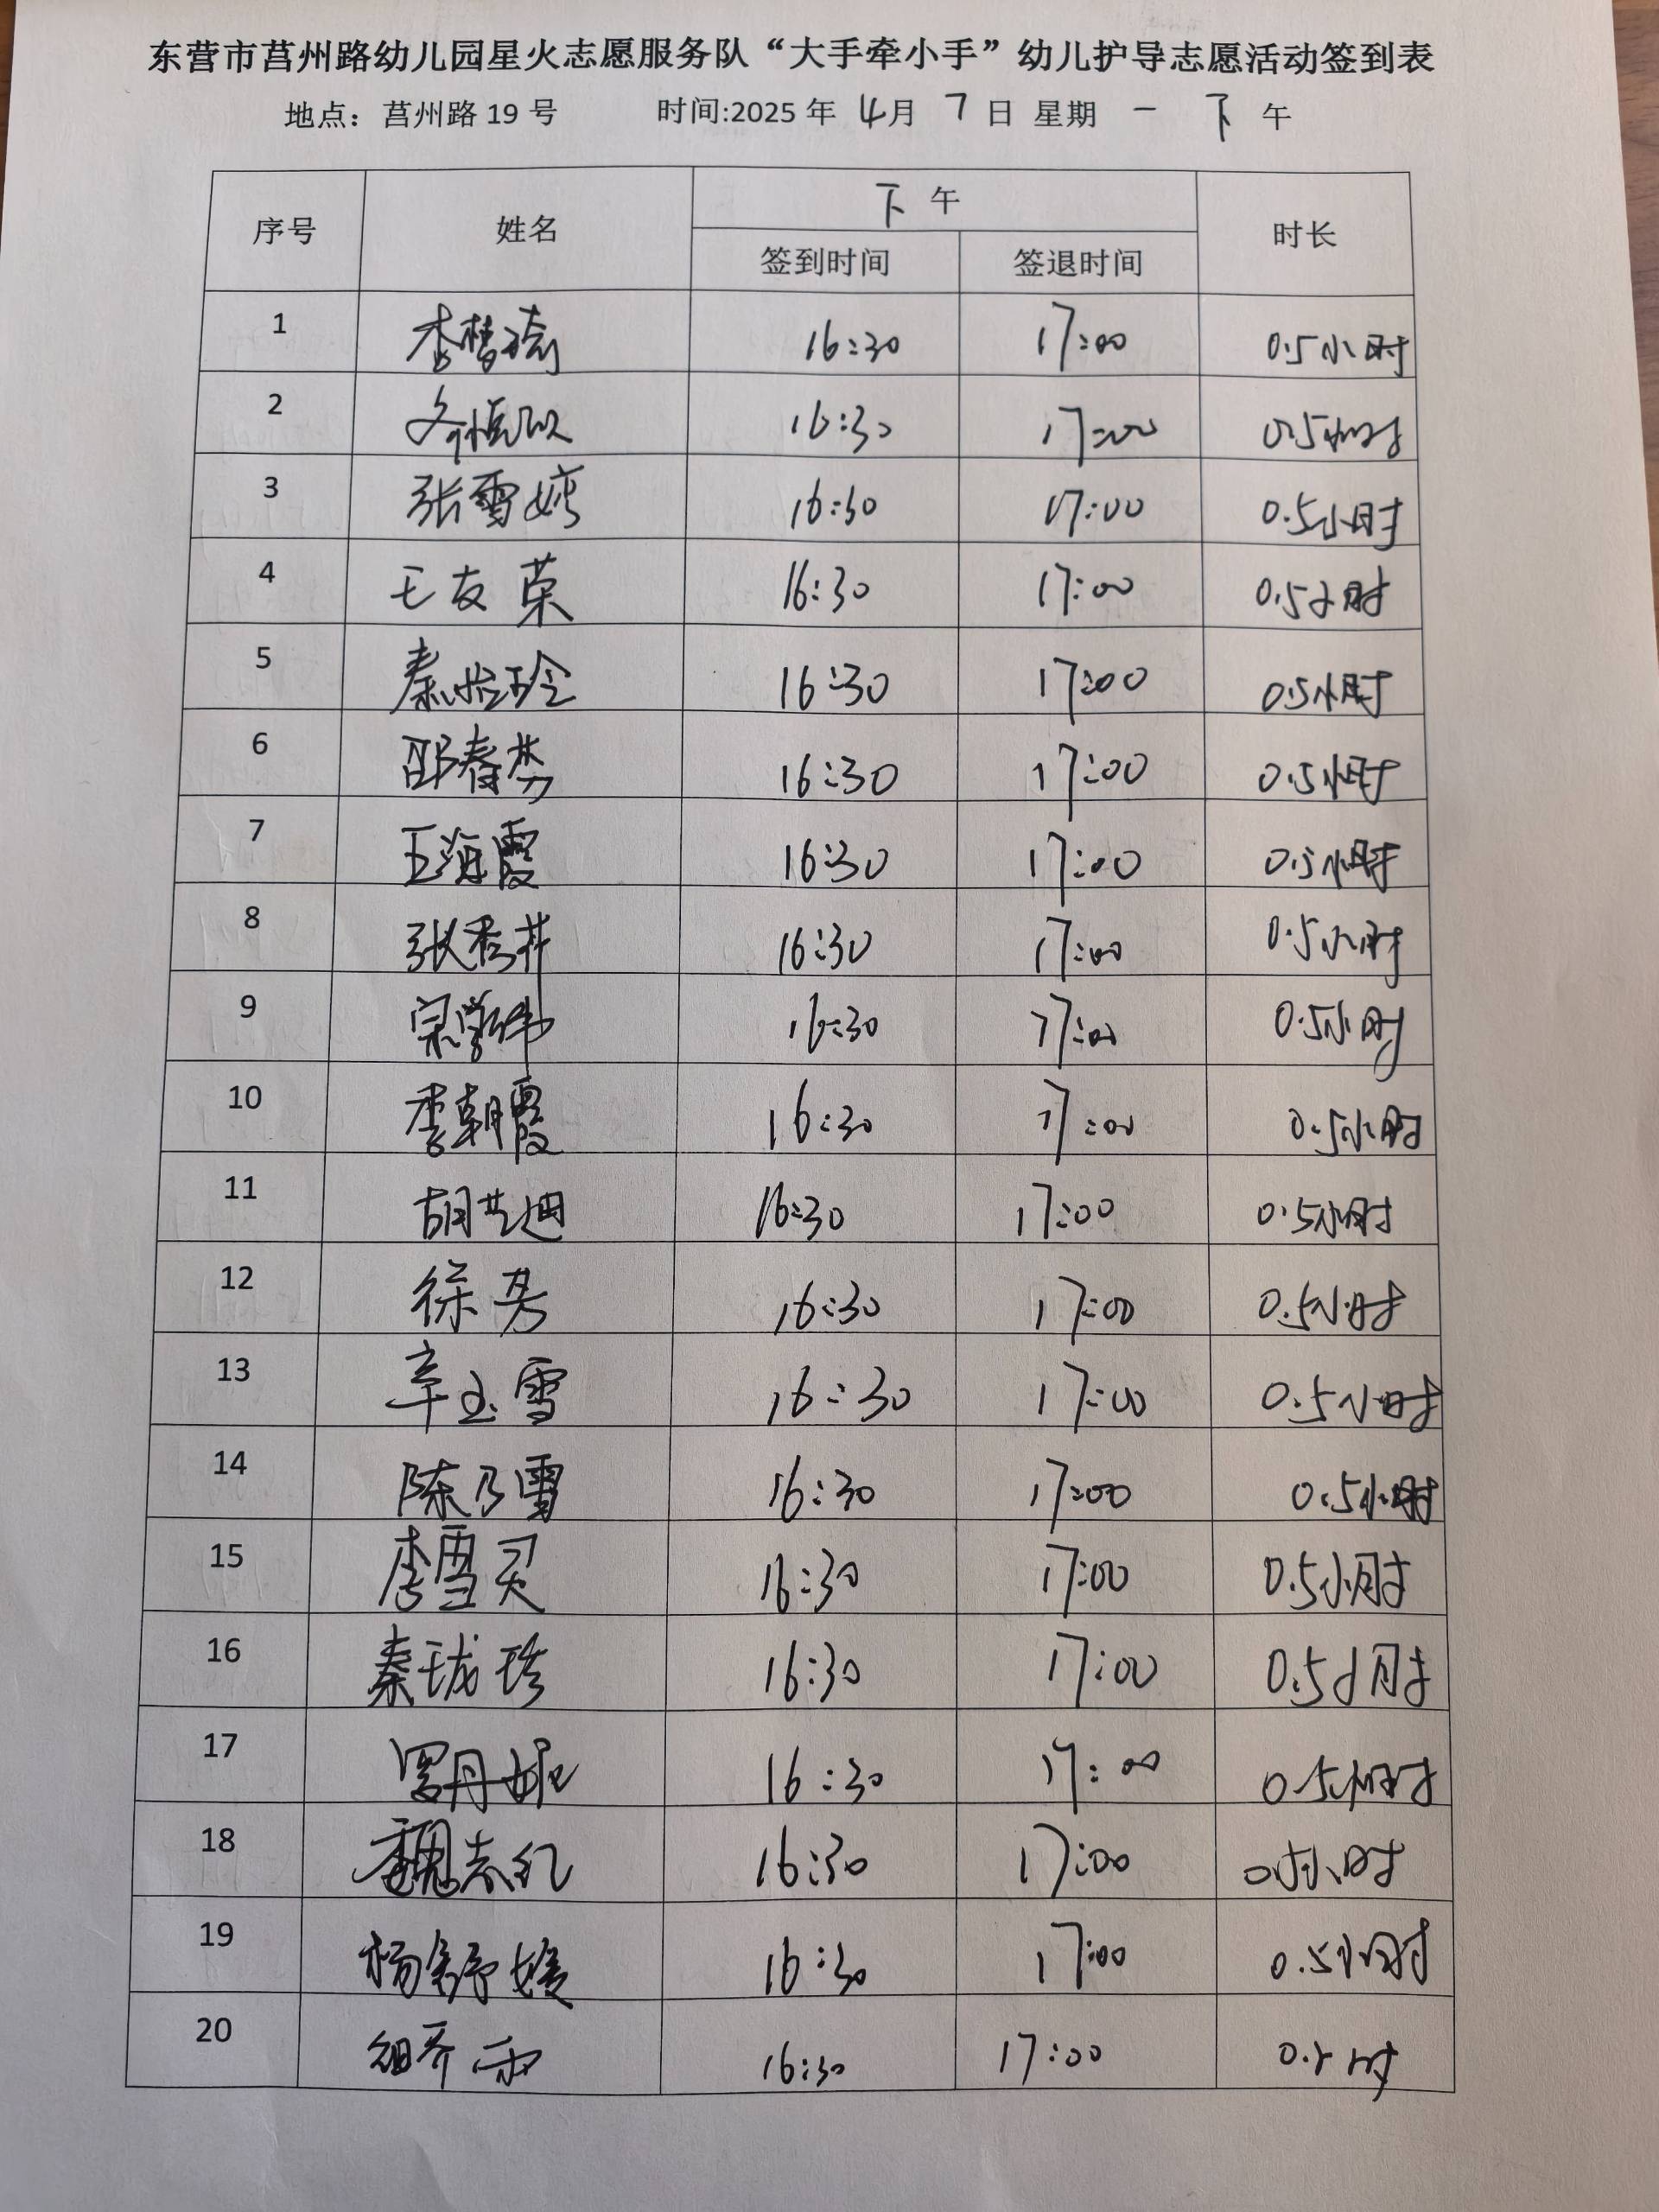 东营市莒州路幼儿园星火志愿服务队“大手牵小手”幼儿护导志愿活动签到表
地点：莒州路 19 号 时间:2025 年 4月 7 日 星期 一 下 午
序号 姓名 下 午 时长
签到时间 签退时间
1 李梦琦 16:30 17:00 0.5小时
2 16:30 17:00 0.5小时
3 张雪婷 16:30 17:00 0.5小时
4 王友荣 16:30 17:00 0.5小时
5 秦怡玲 16:30 17:00 0.5小时
6 邵春梦 16:30 17:00 0.5小时
7 王海霞 16:30 17:00 0.5小时
8 张秀井 16:30 17:00 0.5小时
9 宗学伟 16:30 17:00 0.5小时
10 李朝霞 16:30 17:00 0.5小时
11 胡芸迪 16:30 17:00 0.5小时
12 徐芳 16:30 17:00 0.5小时
13 辛玉雪 16:30 17:00 0.5小时
14 陈乃雪 16:30 17:00 0.5小时
15 李雪灵 16:30 17:00 0.5小时
16 秦珑珍 16:30 17:00 0.5小时
17 罗丹妮 16:30 17:00 0.5小时
18 魏志红 16:30 17:00 0.5小时
19 杨舒媛 16:30 17:00 0.5小时
20 16:30 17:00